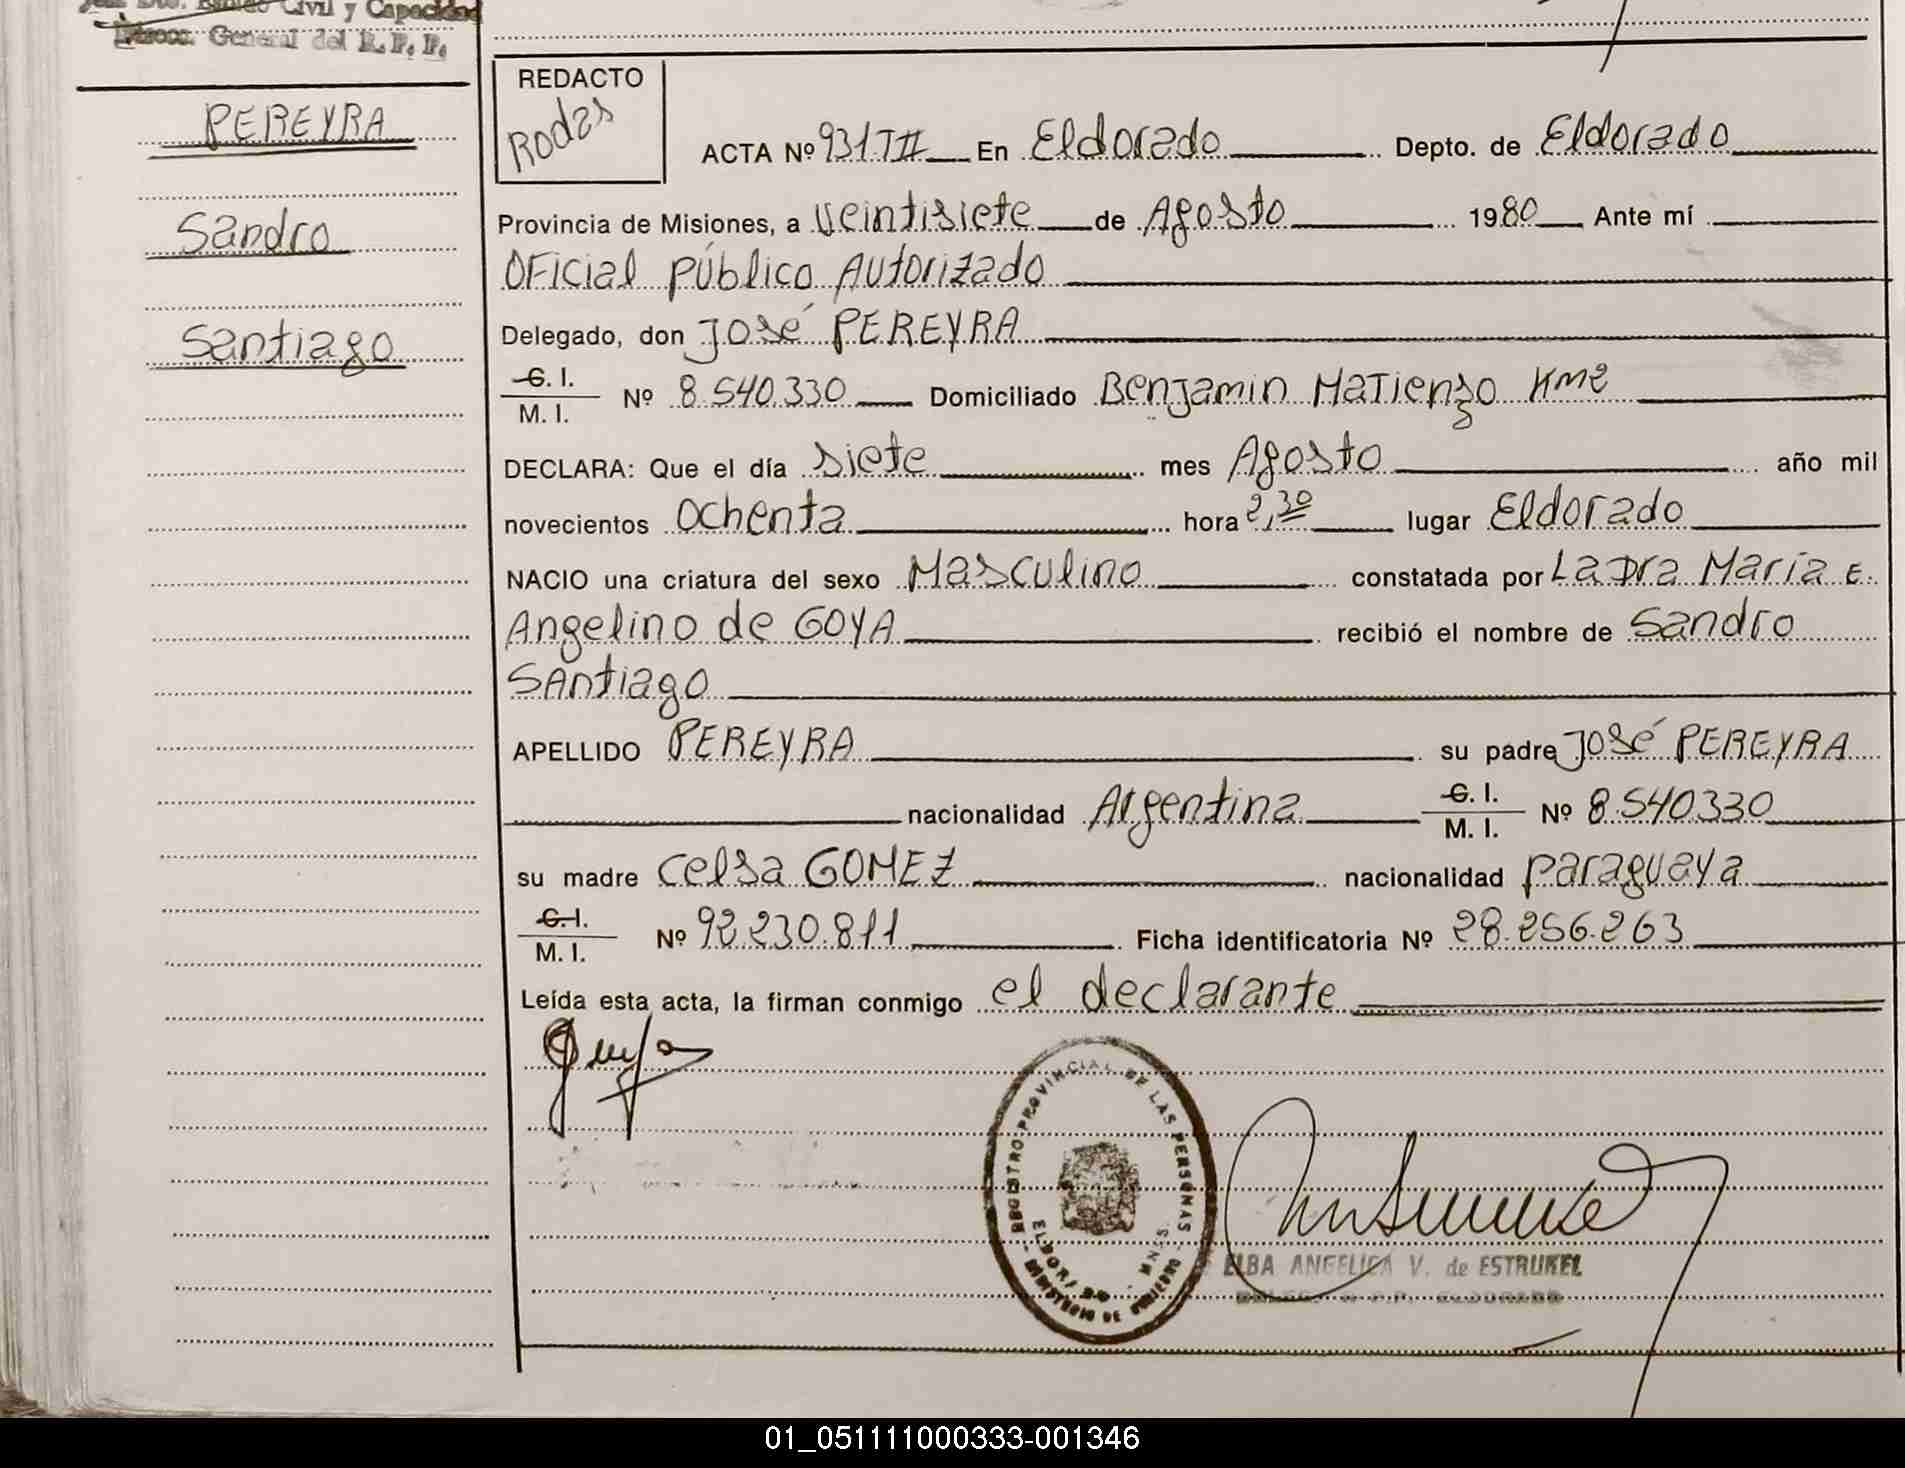 Civil y Capacidad
General del R. P. P.
PEREYRA
Sandro
Santiago
REDACTO
Rodas
ACTA Nº 931 TII En Eldorado Depto. de Eldorado
Provincia de Misiones, a veintisiete de Agosto 1980 Ante mí
Oficial Público Autorizado
Delegado, don José PEREYRA
C. I. / M. I. Nº 8.540.330 Domiciliado Benjamin Matienzo Km2
DECLARA: Que el día siete mes Agosto año mil
novecientos ochenta hora 2,30 lugar Eldorado
NACIO una criatura del sexo Masculino constatada por Ladra María E.
Angelino de GOYA recibió el nombre de Sandro
Santiago
APELLIDO PEREYRA su padre José PEREYRA
nacionalidad Argentina C. I. / M. I. Nº 8.540330
su madre Celsa GOMEZ nacionalidad paraguaya
C. I. / M. I. Nº 92.230.811 Ficha identificatoria Nº 28.256.263
Leída esta acta, la firman conmigo el declarante
REGISTRO PROVINCIAL DE LAS PERSONAS
ELDORADO - MNES.
MINISTERIO DE GOBIERNO
ELBA ANGELICA V. de ESTRUKEL
DELEG. R.P.P. ELDORADO
01_051111000333-001346